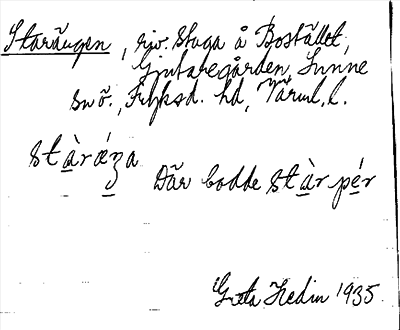 Staräugen, riv. stuga å Bostället,
Gjutaregården, Sunne
sn ö., Fryksd. hd, Värml. l.
stàrǽʒa
Där bodde stàr pér
Greta Hedin 1935.